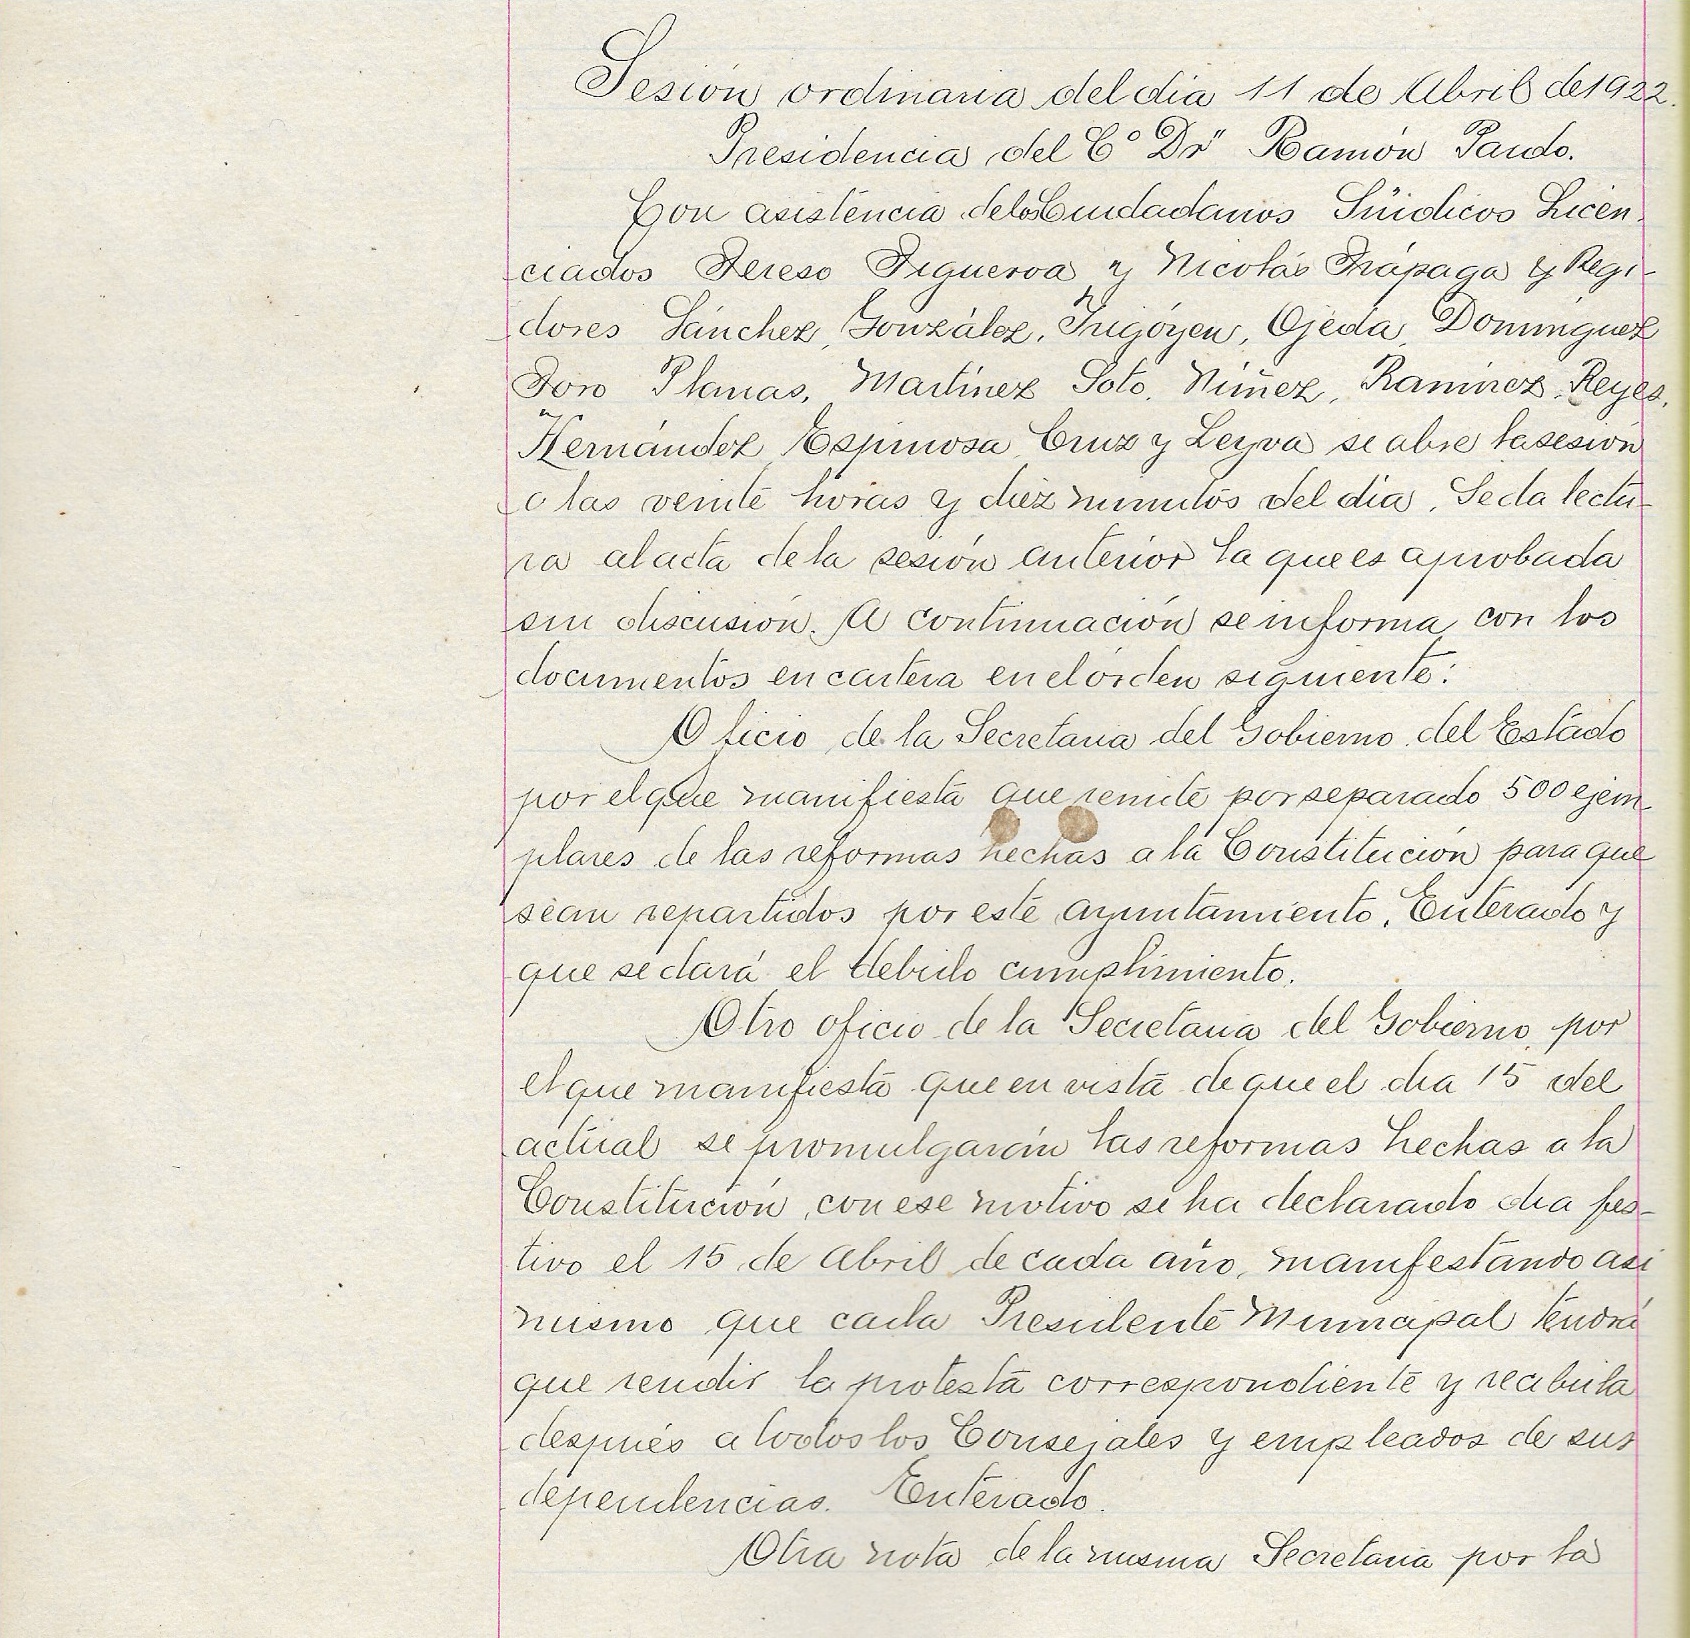 Sesión ordinaria del día 11 de Abril de 1922.
Presidencia del C° Dr" Ramón Pardo.
Con asistencia de los Ciudadanos Síndicos Licen-
ciados Tereso Figueroa y Nicolás Trápaga y Regi-
dores Sánchez, González, Irigóyen, Ojeda, Domínguez
Toro Planas, Martínez Soto, Núñez, Ramírez, Reyes,
Hernández, Espinosa, Cruz y Leyva se abre la sesión
a las veinte horas y diez minutos del día. Se da lectu-
ra al acta de la sesión anterior la que es aprobada
sin discusión. A continuación se informa con los
documentos en cartera en el órden siguiente:
Oficio de la Secretaria del Gobierno del Estado
por el que manifiesta que remite por separado 500 ejem-
plares de las reformas hechas a la Constitución para que
sean repartidos por este ayuntamiento. Enterado y
que se dará el debido cumplimiento.
Otro oficio de la Secretaria del Gobierno, por
el que manifiesta que en vista de que el dia 15 del
actual se promulgarán las reformas hechas a la
Constitución, con ese motivo se ha declarado dia fes-
tivo el 15 de Abril de cada año, manifestando asi
mismo que cada Presidente Municipal tendrá
que rendir la protesta correspondiente y recibirla
después a todos los Consejales y empleados de sus
dependencias. Enterado.
Otra nota de la misma Secretaria por la